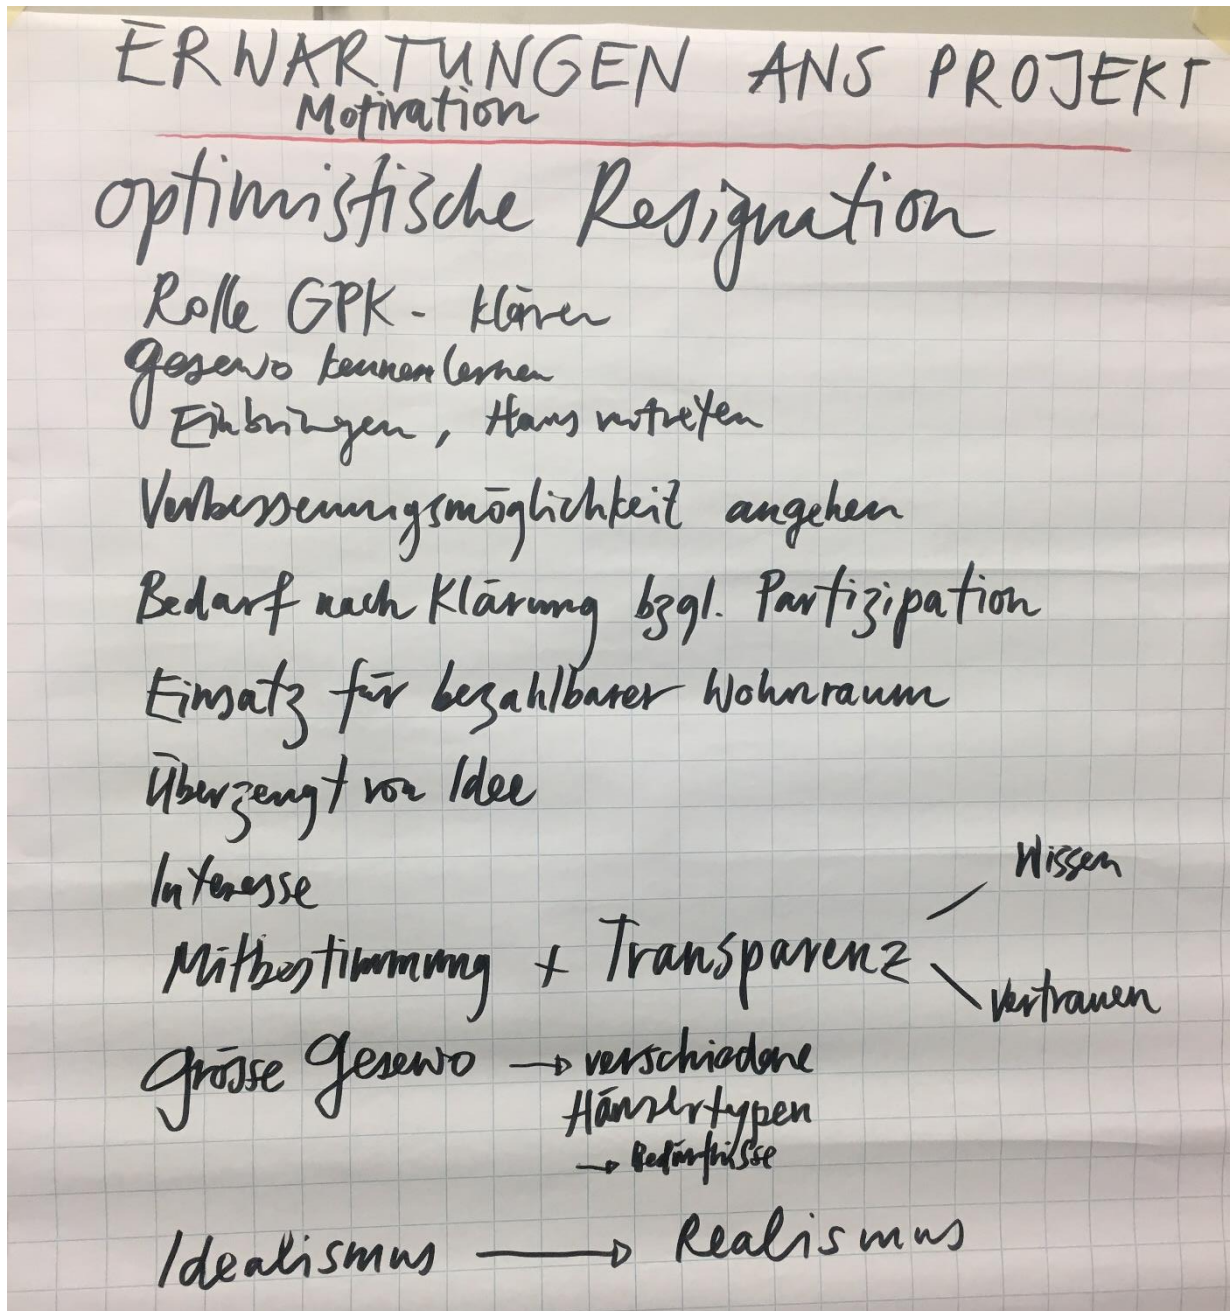 ERWARTUNGEN ANS PROJEKT
Motivation
optimistische Resignation
Rolle GPK - klären
Gesewo kennenlernen
Einbringen, Haus vertreten
Verbesserungsmöglichkeit angehen
Bedarf nach Klärung bzgl. Partizipation
Einsatz für bezahlbarer Wohnraum
Überzeugt von Idee
Interesse
Wissen
Mitbestimmung + Transparenz
Vertrauen
Grösse Gesewo → verschiedene
Häusertypen
→ Bedürfnisse
Idealismus → Realismus